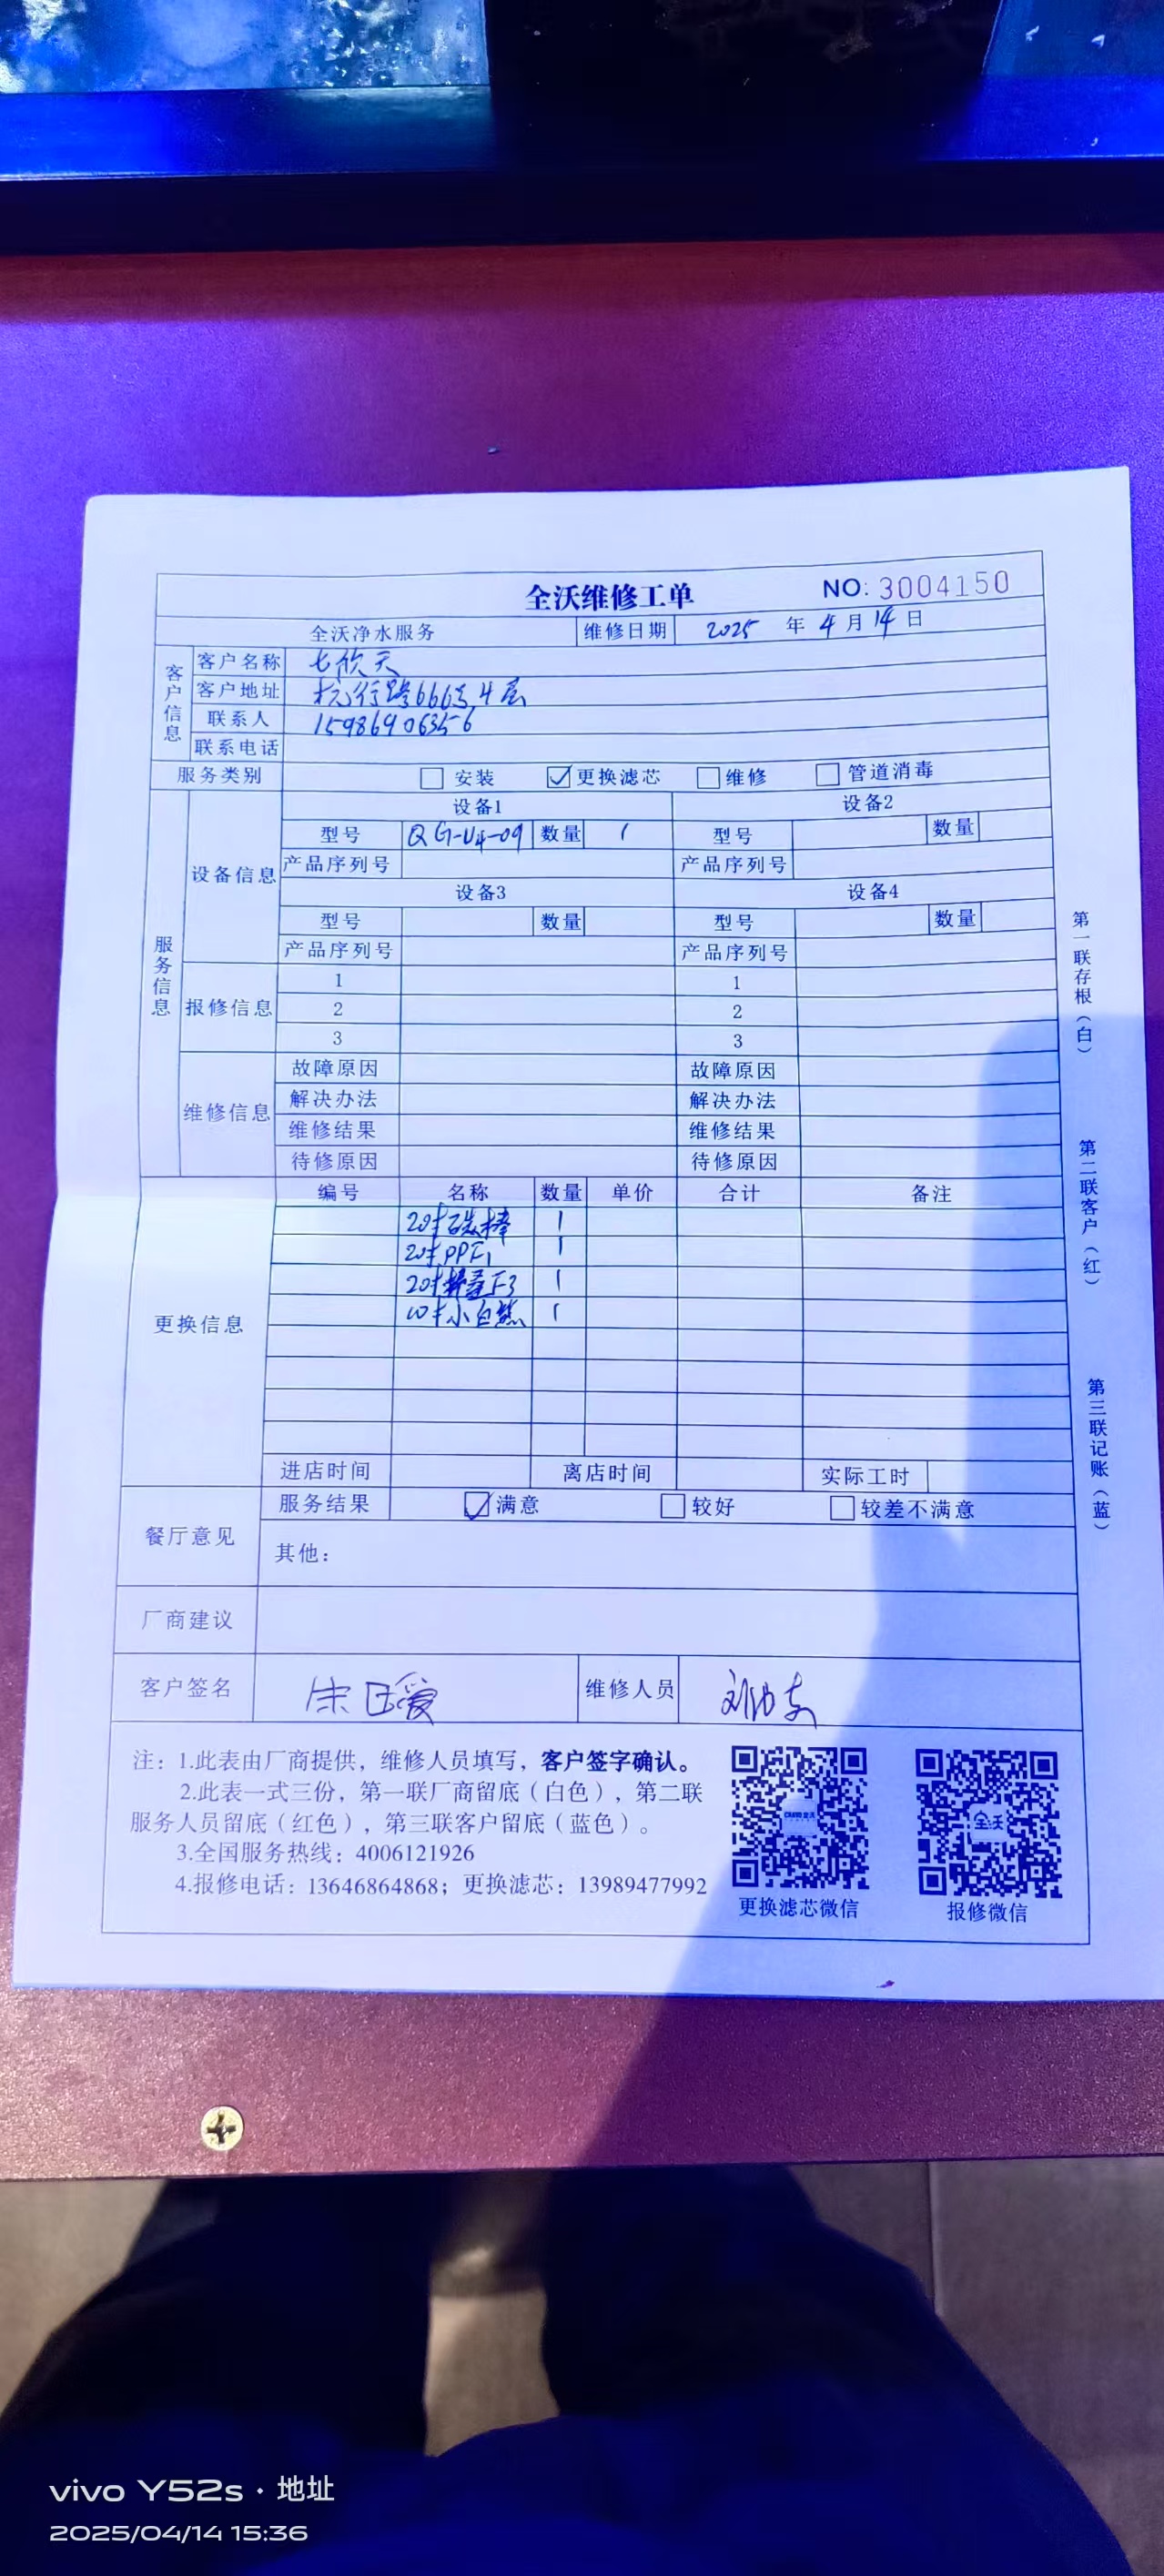 全沃维修工单 NO: 3004150
全沃净水服务 维修日期 2025 年 4 月 14 日
客户信息
客户名称 七欣天
客户地址 杭行路666号4层
联系人 15986906356
联系电话
服务类别 安装 更换滤芯 维修 管道消毒
服务信息
设备信息
设备1 设备2
型号 QG-U4-09 数量 1 型号 数量
产品序列号 产品序列号
设备3 设备4
型号 数量 型号 数量
产品序列号 产品序列号
报修信息
1 1
2 2
3 3
维修信息
故障原因 故障原因
解决办法 解决办法
维修结果 维修结果
待修原因 待修原因
更换信息
编号 名称 数量 单价 合计 备注
20寸碳棒 1
20寸PPF1 1
20寸 F3 1
10寸小白熊 1
进店时间 离店时间 实际工时
餐厅意见
服务结果 满意 较好 较差不满意
其他：
厂商建议
客户签名 宋 爱 维修人员 刘
注：1.此表由厂商提供，维修人员填写，客户签字确认。
2.此表一式三份，第一联厂商留底（白色），第二联
服务人员留底（红色），第三联客户留底（蓝色）。
3.全国服务热线：4006121926
4.报修电话：13646864868；更换滤芯：13989477992
全沃
更换滤芯微信 报修微信
第一联存根（白）
第二联客户（红）
第三联记账（蓝）
vivo Y52s · 地址
2025/04/14 15:36